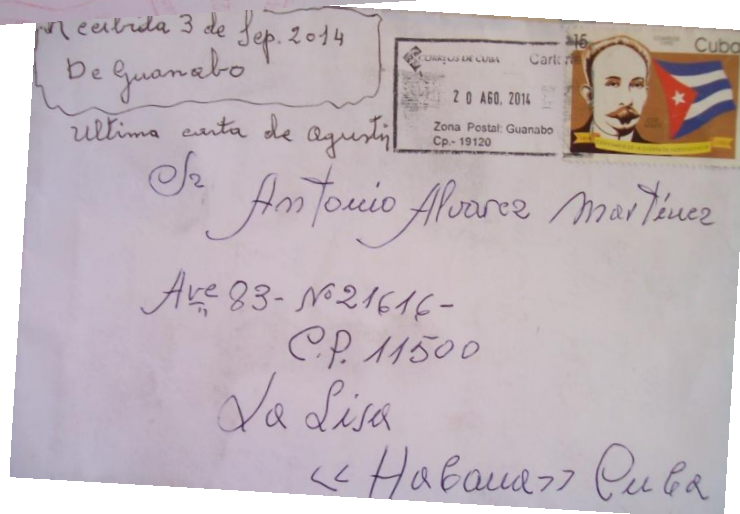 Recibida 3 de Sep. 2014
De Guanabo
Ultima carta de agusti
15
Cuba
CORREOS DE CUBA
20 AGO. 2014
Zona Postal: Guanabo
Cp.- 19120
Sr Antonio Alvarez Martínez
Ave 83- Nº 21616-
C.P. 11500
La Lisa
<< Habana >> Cuba